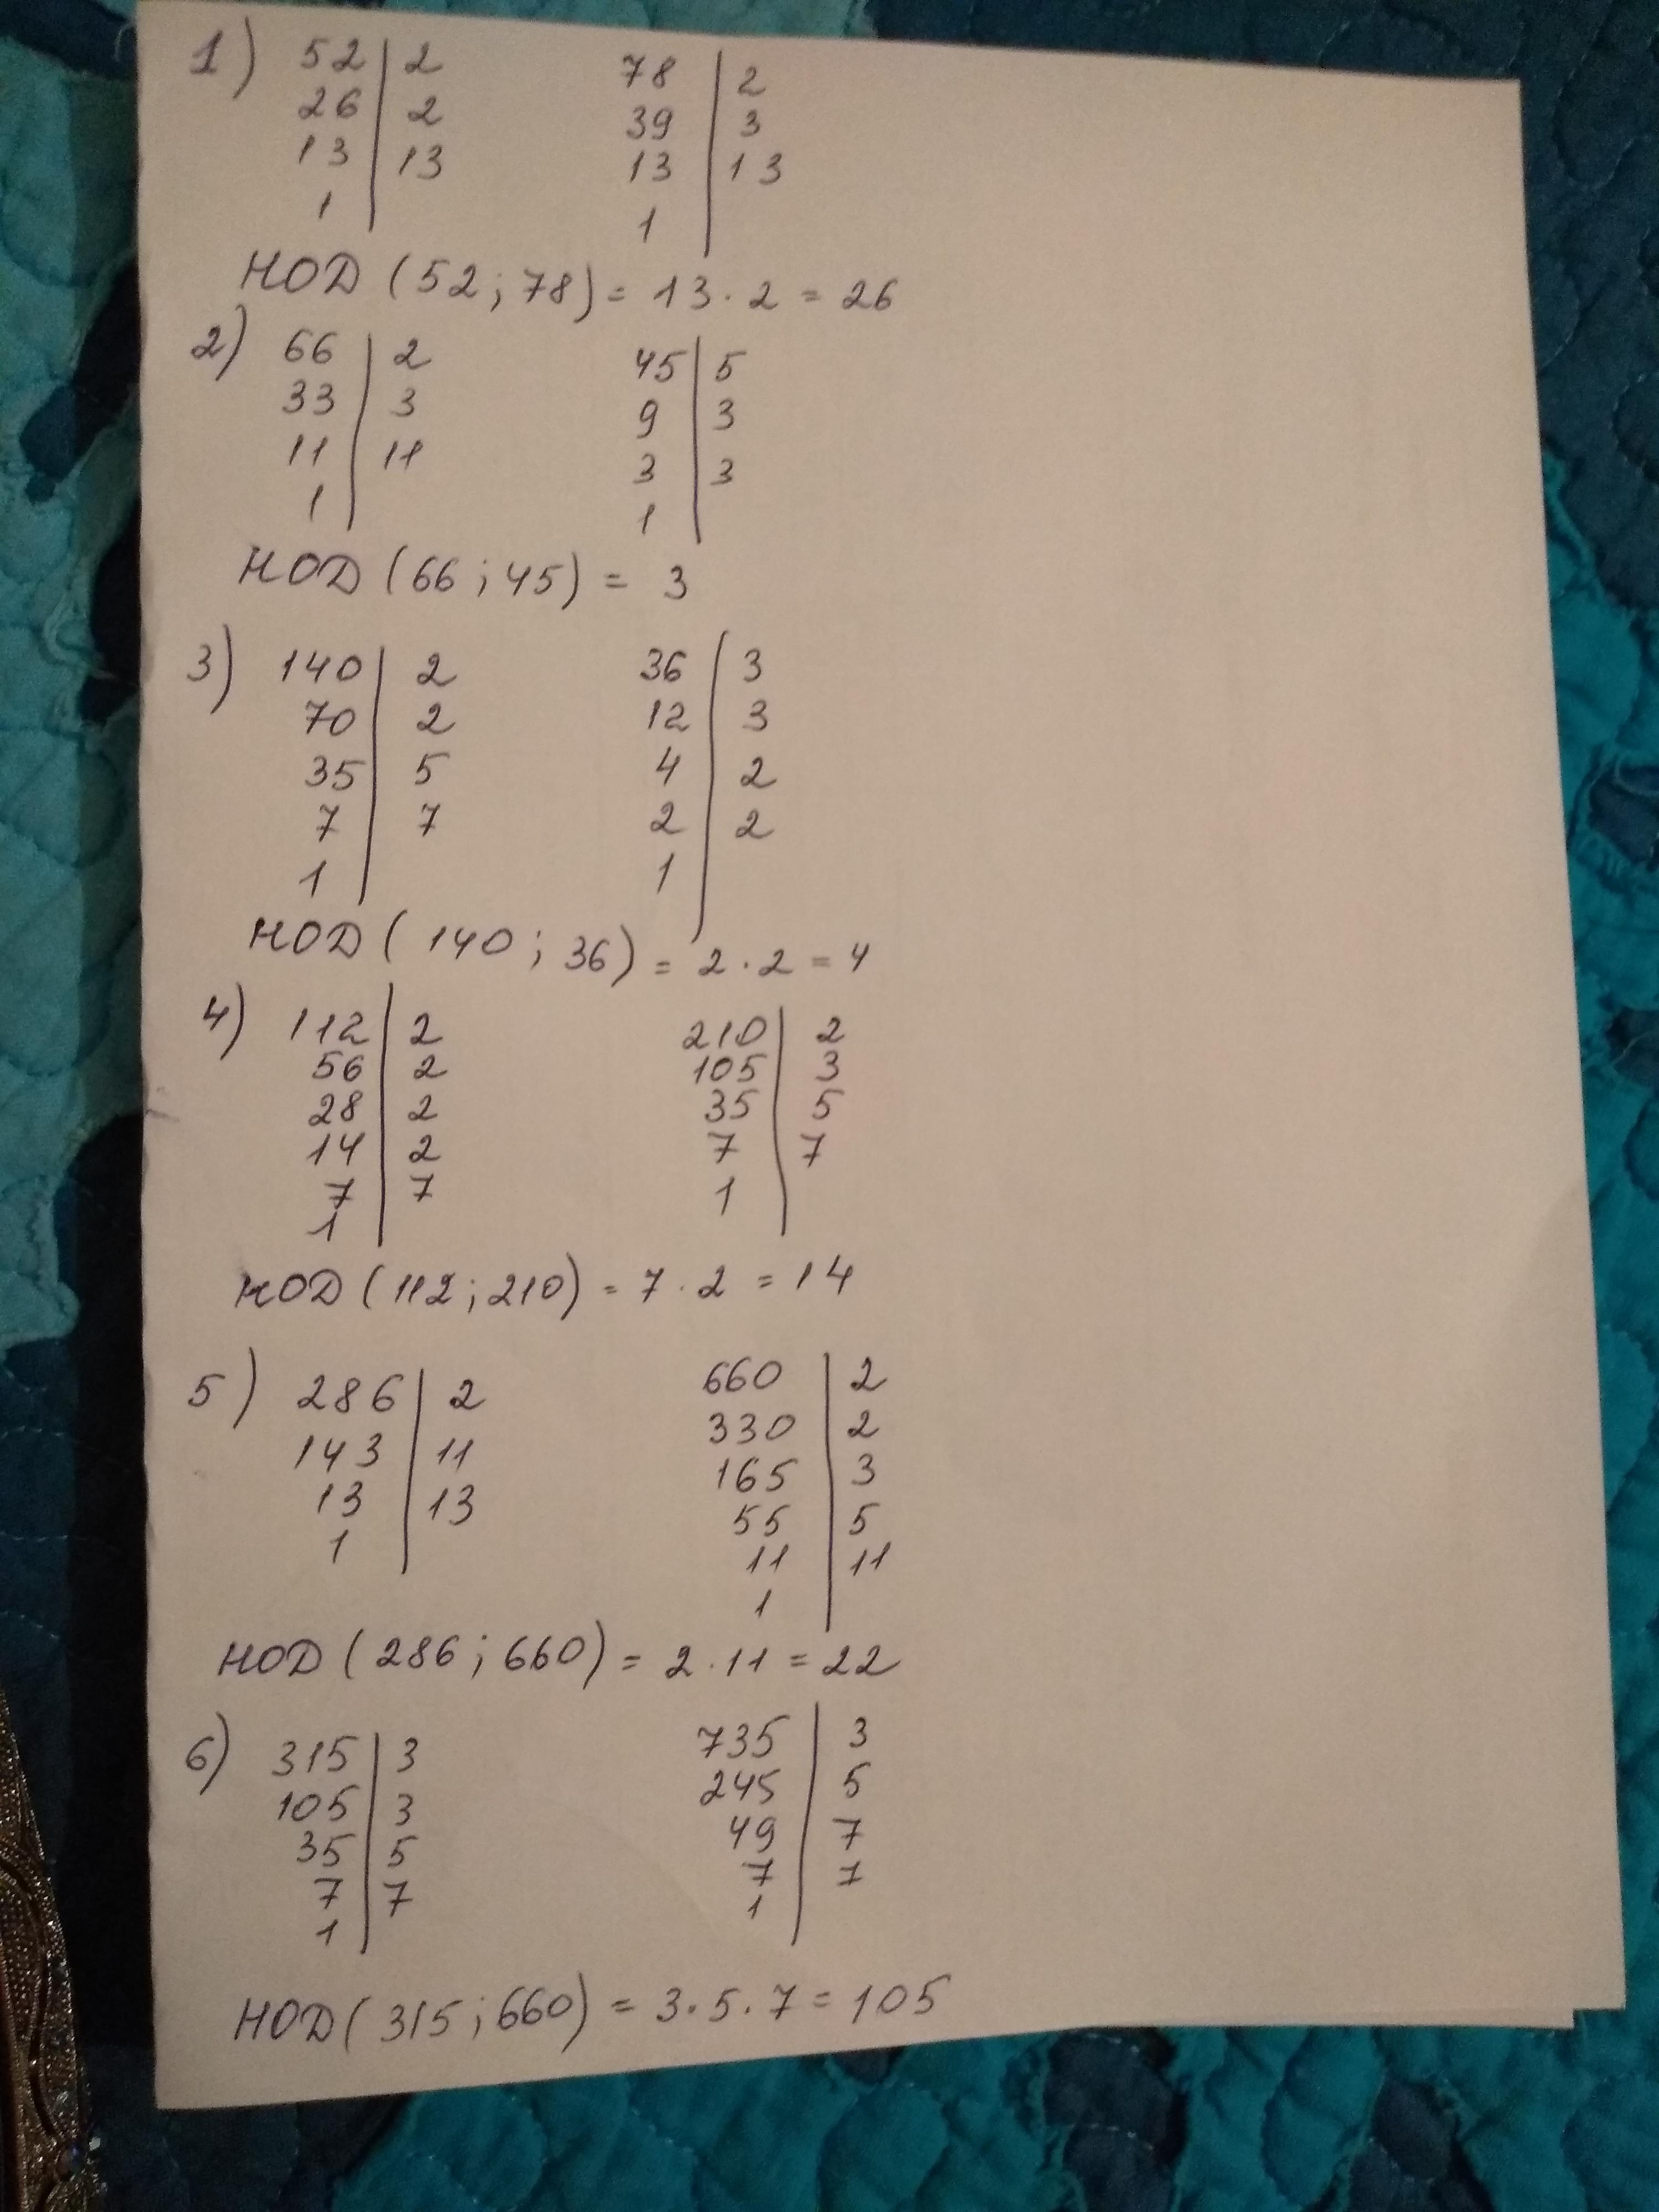 1) 52 | 2 78 | 2
26 | 2 39 | 3
13 | 13 13 | 13
1 | 1 |
НОД (52; 78) = 13 · 2 = 26
2) 66 | 2 45 | 5
33 | 3 9 | 3
11 | 11 3 | 3
1 | 1 |
НОД (66; 45) = 3
3) 140 | 2 36 | 3
70 | 2 12 | 3
35 | 5 4 | 2
7 | 7 2 | 2
1 | 1 |
НОД (140; 36) = 2 · 2 = 4
4) 112 | 2 210 | 2
56 | 2 105 | 3
28 | 2 35 | 5
14 | 2 7 | 7
7 | 7 1 |
1 |
НОД (112; 210) = 7 · 2 = 14
5) 286 | 2 660 | 2
143 | 11 330 | 2
13 | 13 165 | 3
1 | 55 | 5
11 | 11
1 |
НОД (286; 660) = 2 · 11 = 22
6) 315 | 3 735 | 3
105 | 3 245 | 5
35 | 5 49 | 7
7 | 7 7 | 7
1 | 1 |
НОД (315; 660) = 3 · 5 · 7 = 105